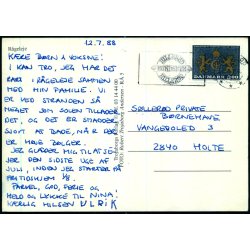 Rågeleje
12.7.88
KÆRE BØRN & VOKSNE!
I KAN TRO, JEG HAR DET
RART I RÅGELEJE SAMMEN
MED MIN FAMILIE. VI ER
VED STRANDEN SÅ
MEGET SOM SOLEN TILLADER
DET, OG DET ER SKADER
SJOVT AT BADE, NÅR DER
ER HØJE BØLGER.
JEG GLÆDER MIG TIL AT SE
JER DEN SIDSTE UGE AF
JULI, INDEN JEG STARTER PÅ
FRITIDSHJEM 1/8.
FARVEL, GOD FERIE OG
HELD OG LYKKE TIL NINA!
KÆRLIG HILSEN ULRIK
DANMARK 3.00
SØLLERØD PRIVATE
BØRNEHAVE
VANGEBOLED 3
2840 HOLTE